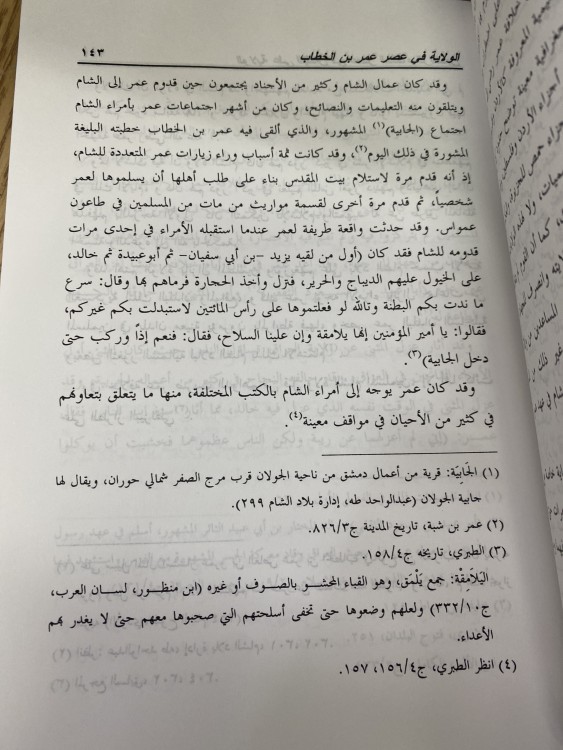 الولاية في عصر عمر بن الخطاب ١٤٣
وقد كان عمال الشام وكثير من الأجناد يجتمعون حين قدوم عمر إلى الشام
ويتلقون منه التعليمات والنصائح، وكان من أشهر اجتماعات عمر بأمراء الشام
اجتماع (الجابية)(١) المشهور، والذي ألقى فيه عمر بن الخطاب خطبته البليغة
المشورة في ذلك اليوم(٢)، وقد كانت ثمة أسباب وراء زيارات عمر المتعددة للشام،
إذ أنه قدم مرة لاستلام بيت المقدس بناء على طلب أهلها أن يسلموها لعمر
شخصياً، ثم قدم مرة أخرى لقسمة مواريث من مات من المسلمين في طاعون
عمواس. وقد حدثت واقعة طريفة لعمر عندما استقبله الأمراء في إحدى مرات
قدومه للشام فقد كان (أول من لقيه يزيد -بن أبي سفيان- ثم أبوعبيدة ثم خالد،
على الخيول عليهم الديباج والحرير، فنزل وأخذ الحجارة فرماهم بها وقال: سرع
ما ندت بكم البطنة وتالله لو فعلتموها على رأس المائتين لاستبدلت بكم غيركم،
فقالوا: يا أمير المؤمنين إنها يلامقة وإن علينا السلاح، فقال: فنعم إذاً وركب حتى
دخل الجابية)(٣).
وقد كان عمر يوجه إلى أمراء الشام بالكتب المختلفة، منها ما يتعلق بتعاونهم
في كثير من الأحيان في مواقف معينة(٤).
(١) الجَابِيَة: قرية من أعمال دمشق من ناحية الجولان قرب مرج الصفر شمالي حوران، ويقال لها
جابية الجولان (عبدالواحد طه، إدارة بلاد الشام ٢٩٩).
(٢) عمر بن شبة، تاريخ المدينة ج٨٢٦/٣.
(٣) الطبري، تاريخه ج١٥٨/٤.
اليَلَامِقَة: جمع يَلْمَق، وهو القباء المحشو بالصوف أو غيره (ابن منظور، لسان العرب،
ج٣٣٢/١٠) ولعلهم وضعوها حتى تخفى أسلحتهم التي صحبوها معهم حتى لا يغدر بهم
الأعداء.
(٤) انظر الطبري، ج١٥٦/٤، ١٥٧.